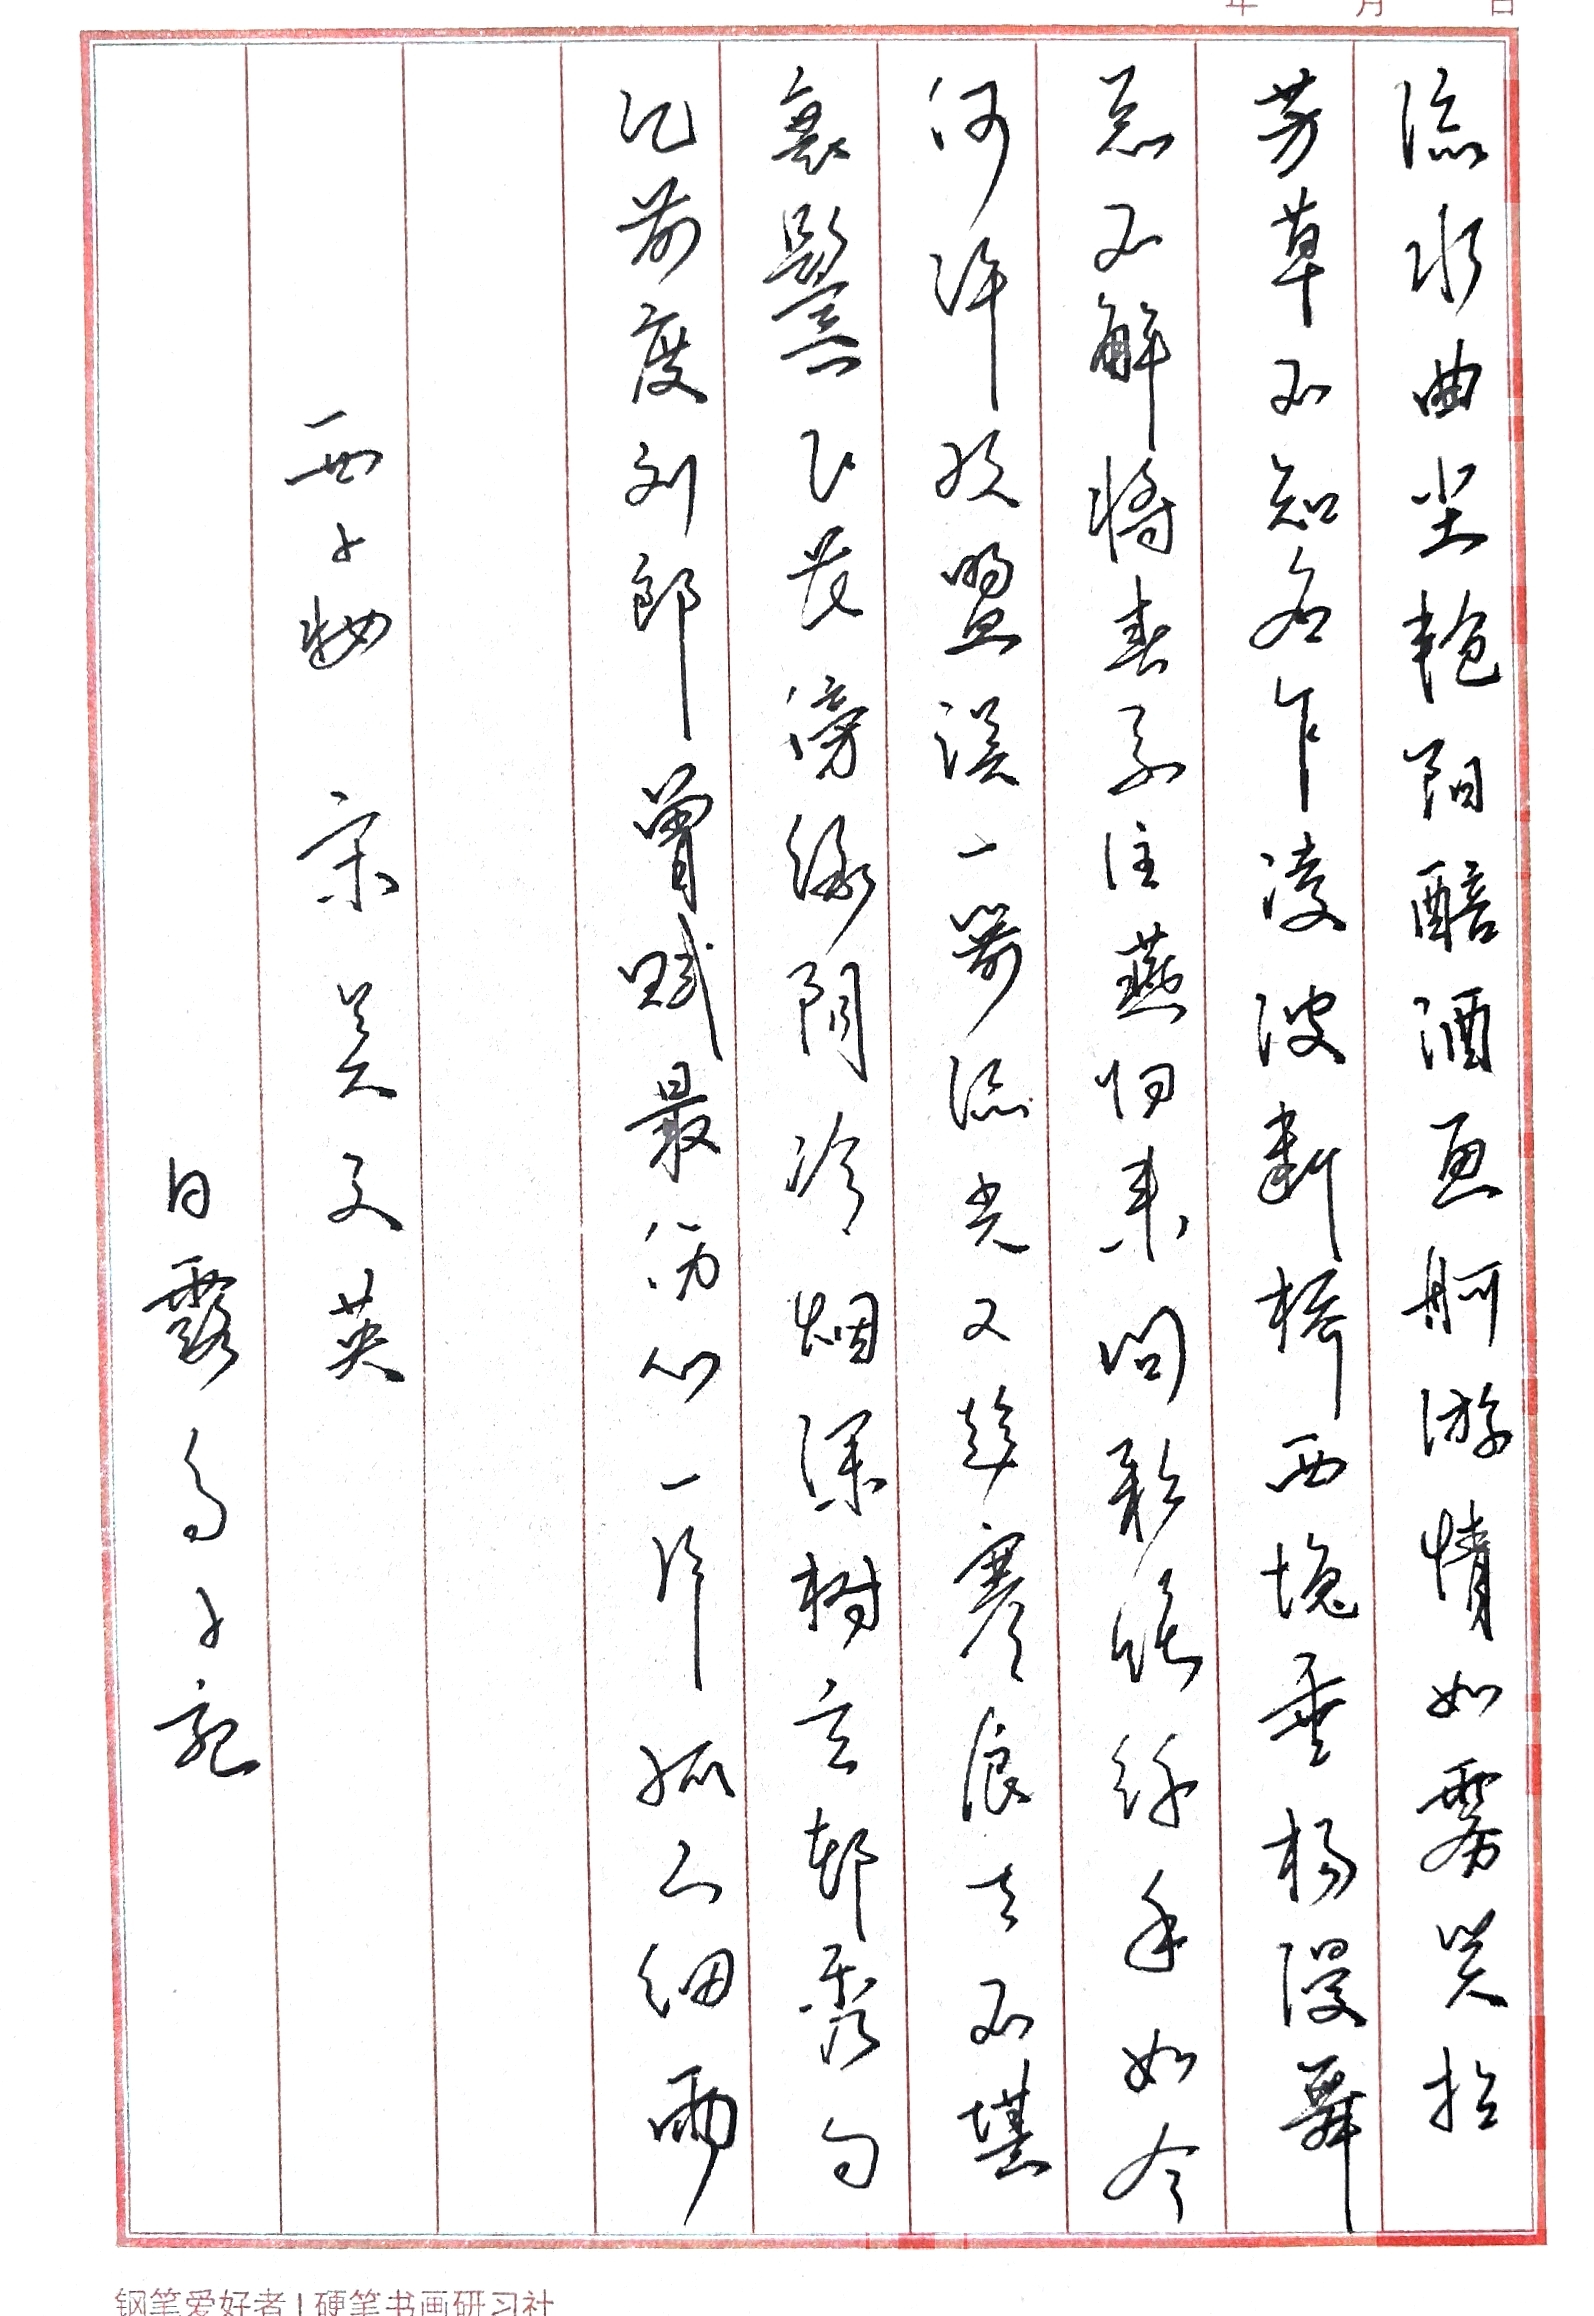 年 月 日
流水曲尘艳阳醅酒画舸游情如雾笑拈
芳草不知名乍凌波断桥西堍垂杨漫舞
总不解将春系住燕归来问彩绳纤手如今
何许欢盟误一箭流光又趁寒食去不堪
衰鬓飞花傍绿阴冷烟深树玄都秀句
记前度刘郎曾赋最伤心一片孤山细雨
西子妆 宋 吴文英
白露 子记
钢笔爱好者 | 硬笔书画研习社